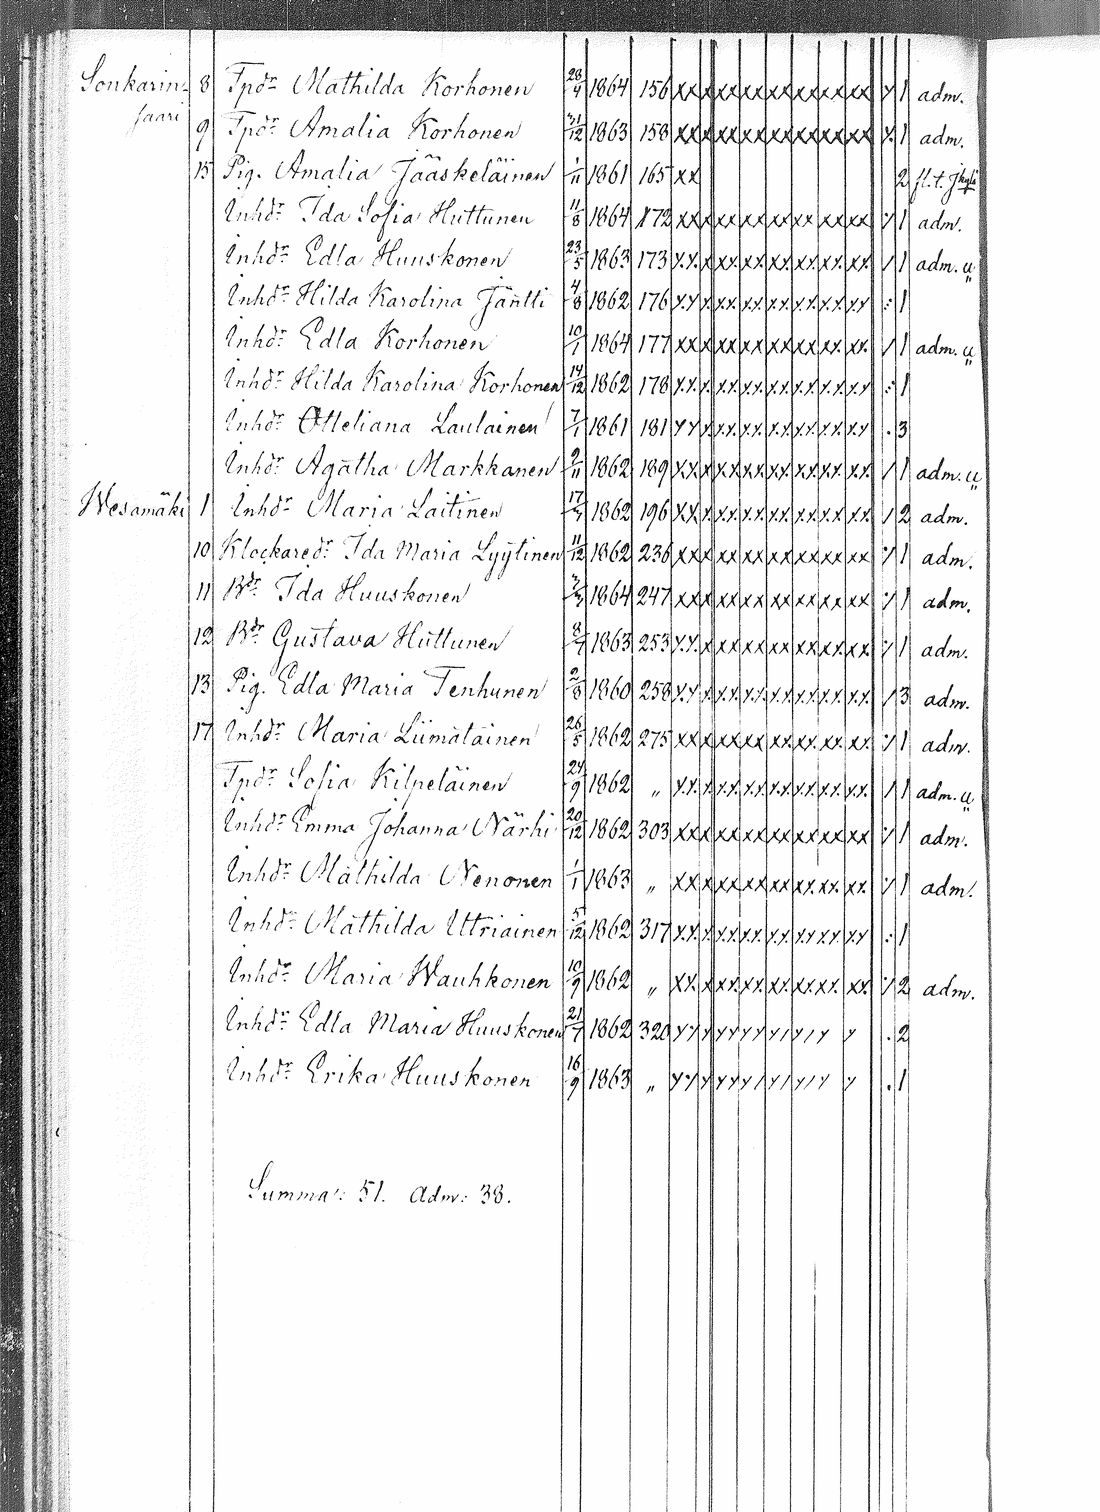 Sonkarin- 8 Tpdr Mathilda Korhonen 28/4 1864 156 xx x xx xx xx xx xx xx 1 adm.
saari
9 Tpdr Amalia Korhonen 31/12 1863 158 xx x xx xx xx xx xx xx 1 adm.
15 Pig. Amalia Jääskeläinen 1/11 1861 165 xx 2 fl.t. Jkylä
Inhdr Ida Sofia Huttunen 11/8 1864 172 xx x xx xx xx xx xx xx 1 adm.
Inhdr Edla Huuskonen 23/5 1863 173 xx x xx xx xx xx xx xx 1 adm. u
Inhdr Hilda Karolina Jäntti 4/8 1862 176 xx x xx xx xx xx xx xx : 1
Inhdr Edla Korhonen 10/1 1864 177 xx x xx xx xx xx xx xx 1 adm. u
Inhdr Hilda Karolina Korhonen 14/12 1862 178 xx x xx xx xx xx xx xx : 1
Inhdr Otteliana Laulainen 7/1 1861 181 xx x xx xx xx xx xx xx . 3
Inhdr Agatha Markkanen 9/11 1862 189 xx x xx xx xx xx xx xx 1 adm. u
Wesamäki 1 Inhdr Maria Laitinen 17/3 1862 196 xx x xx xx xx xx xx xx 2 adm.
10 Klockaredr Ida Maria Lyytinen 11/12 1862 236 xx x xx xx xx xx xx xx 1 adm.
11 Bdr Ida Huuskonen 1864 247 xx x xx xx xx xx xx xx 1 adm.
12 Bdr Gustava Huttunen 8/7 1863 253 xx x xx xx xx xx xx xx 1 adm.
13 Pig. Edla Maria Tenhunen 2/8 1860 258 xx x xx xx xx xx xx xx 3 adm.
17 Inhdr Maria Liimatainen 26/5 1862 275 xx x xx xx xx xx xx xx 1 adm.
Tpdr Sofia Kilpeläinen 24/9 1862 „ xx x xx xx xx xx xx xx 1 adm. u
Inhdr Emma Johanna Närhi 20/12 1862 303 xx x xx xx xx xx xx xx 1 adm.
Inhdr Mathilda Nenonen 1/1 1863 „ xx x xx xx xx xx xx xx 1 adm.
Inhdr Mathilda Utriainen 5/12 1862 317 xx x xx xx xx xx xx xx : 1
Inhdr Maria Wauhkonen 10/9 1862 „ xx x xx xx xx xx xx xx 2 adm.
Inhdr Edla Maria Huuskonen 21/7 1862 320 . 2
Inhdr Erika Huuskonen 16/9 1863 „ . 1
Summa: 51. Adm: 38.